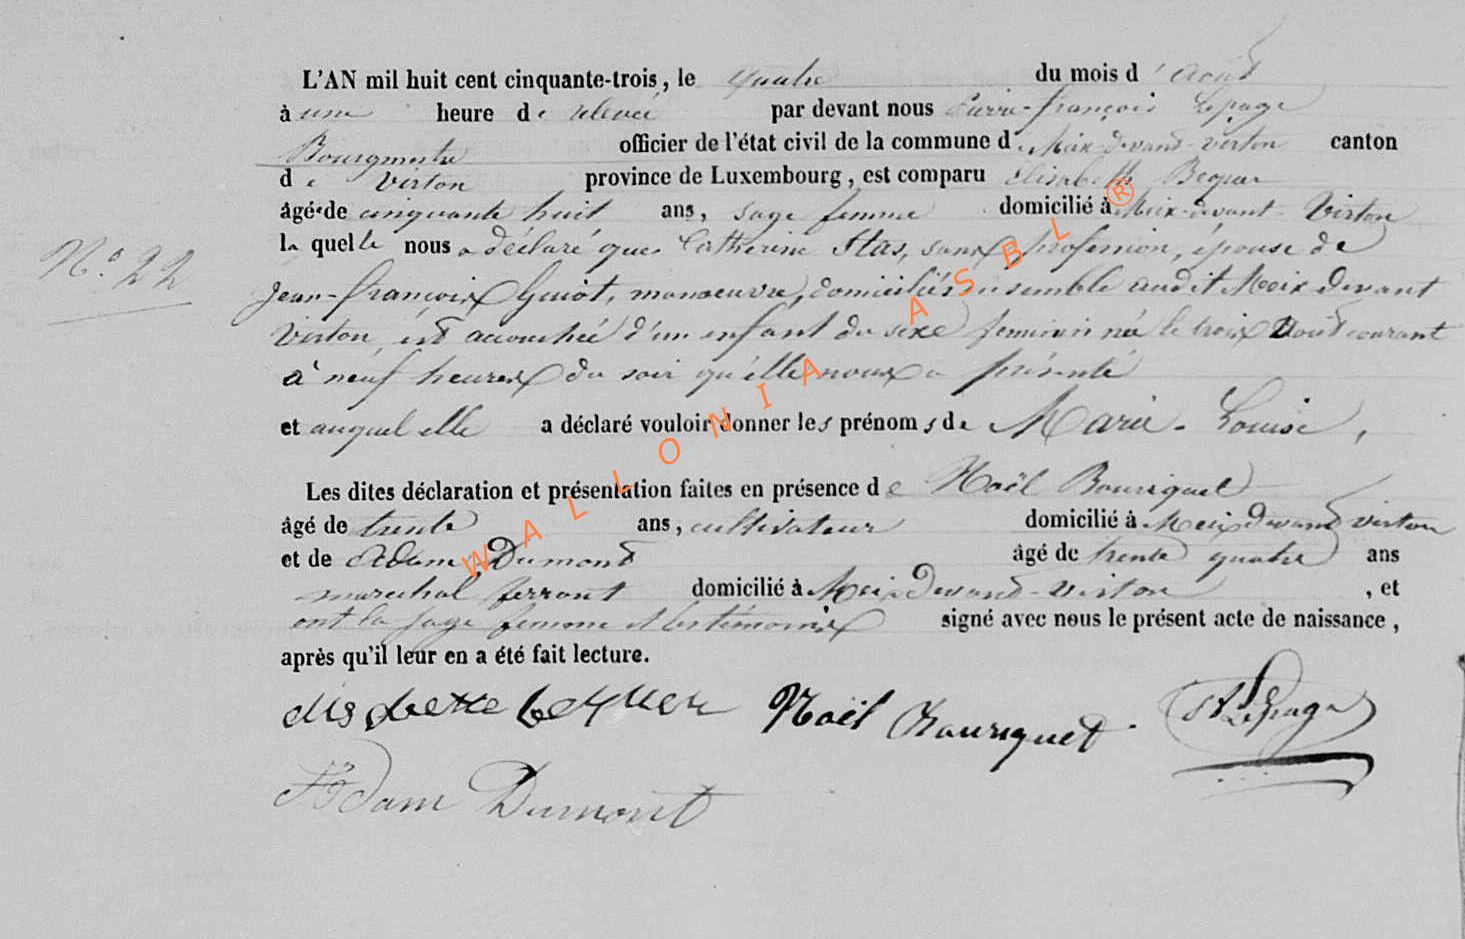 L'AN mil huit cent cinquante-trois, le quatre du mois d'Août
à une heure de relevée par devant nous Pierre-françois Lepage
Bourgmestre officier de l'état civil de la commune de Meix-devant-virton canton
de Virton province de Luxembourg, est comparu Elisabeth Bequer
âgée de cinquante huit ans, sage femme domicilié à Meix-devant-Virton
la quelle nous a déclaré que Catherine Stas, sans profession, épouse de
Jean-françois Guiot, manoeuvre, domiciliés ensemble audit Meix devant
Virton, est accouchée d'un enfant du sexe feminin née le trois Août courant
à neuf heures du soir qu'elle nous a présenté
et auquel elle a déclaré vouloir donner les prénoms de Marie-Louise,
Les dites déclaration et présentation faites en présence de Noël Bouriquet
âgé de trente ans, cultivateur domicilié à Meix devant virton
et de Adam Dumont âgé de trente quatre ans
marechal ferrant domicilié à Meix Devant-virton, et
ont la sage femme & les témoins signé avec nous le présent acte de naissance,
après qu'il leur en a été fait lecture.
N° 22
Noël Bouriquet. Lepage
Adam Dumont
WALLONIA ASBL ®